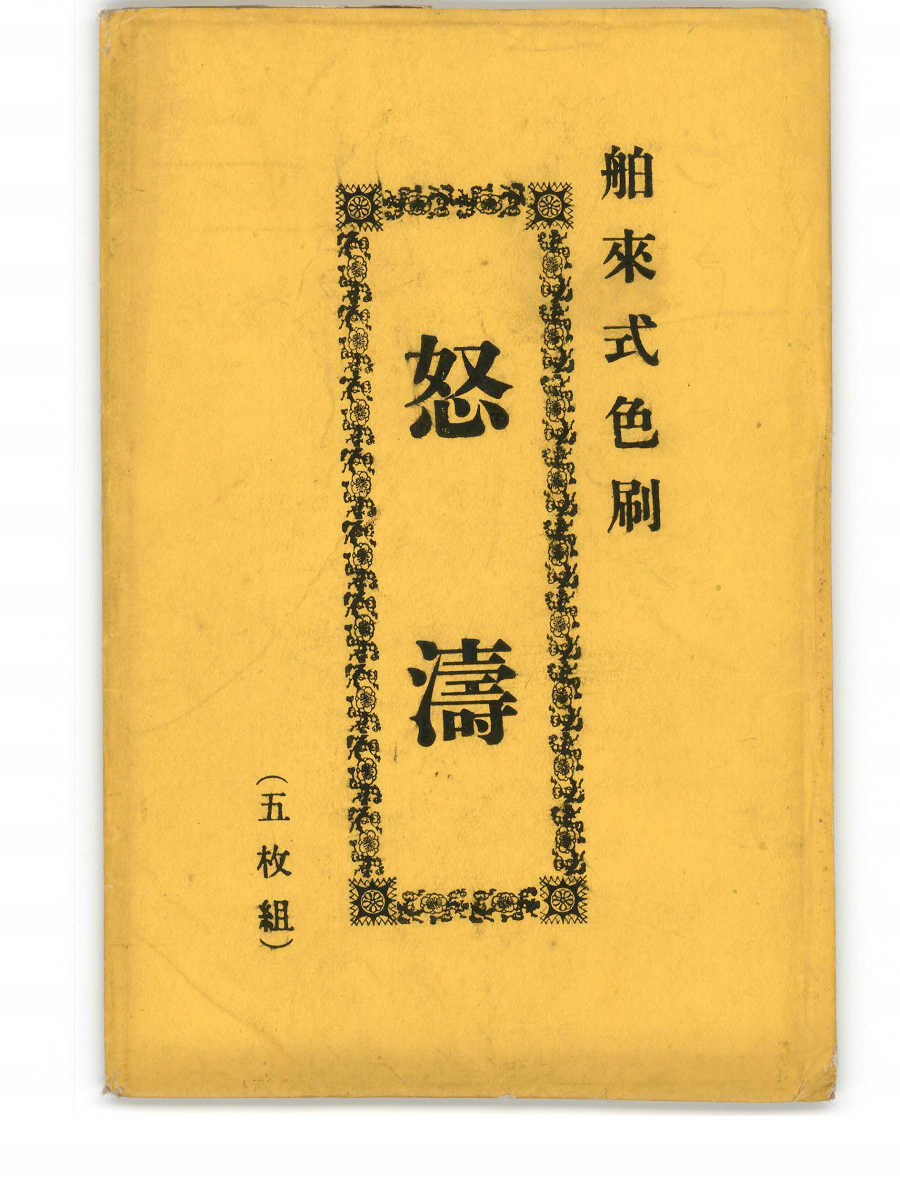 舶來式色刷
怒濤
(五枚組)